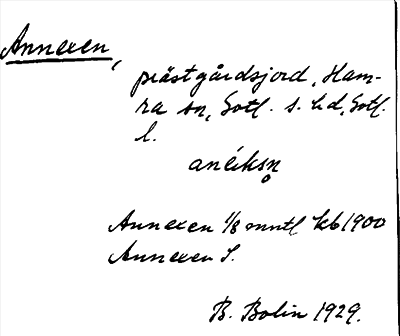 Annexen,
prästgårdsjord, Ham-
ra sn, Gotl. s. hd, Gotl.
l.
anéiksn̥
Annexen 1/8 mntl kb 1900
Annexen S.
B. Bolin 1929.